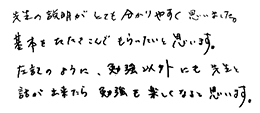 先生の説明がとても分かりやすく思いました。
基本をたたきこんでもらいたいと思います。
左記のように、勉強以外にも先生と
話が出来たら勉強も楽しくなると思います。